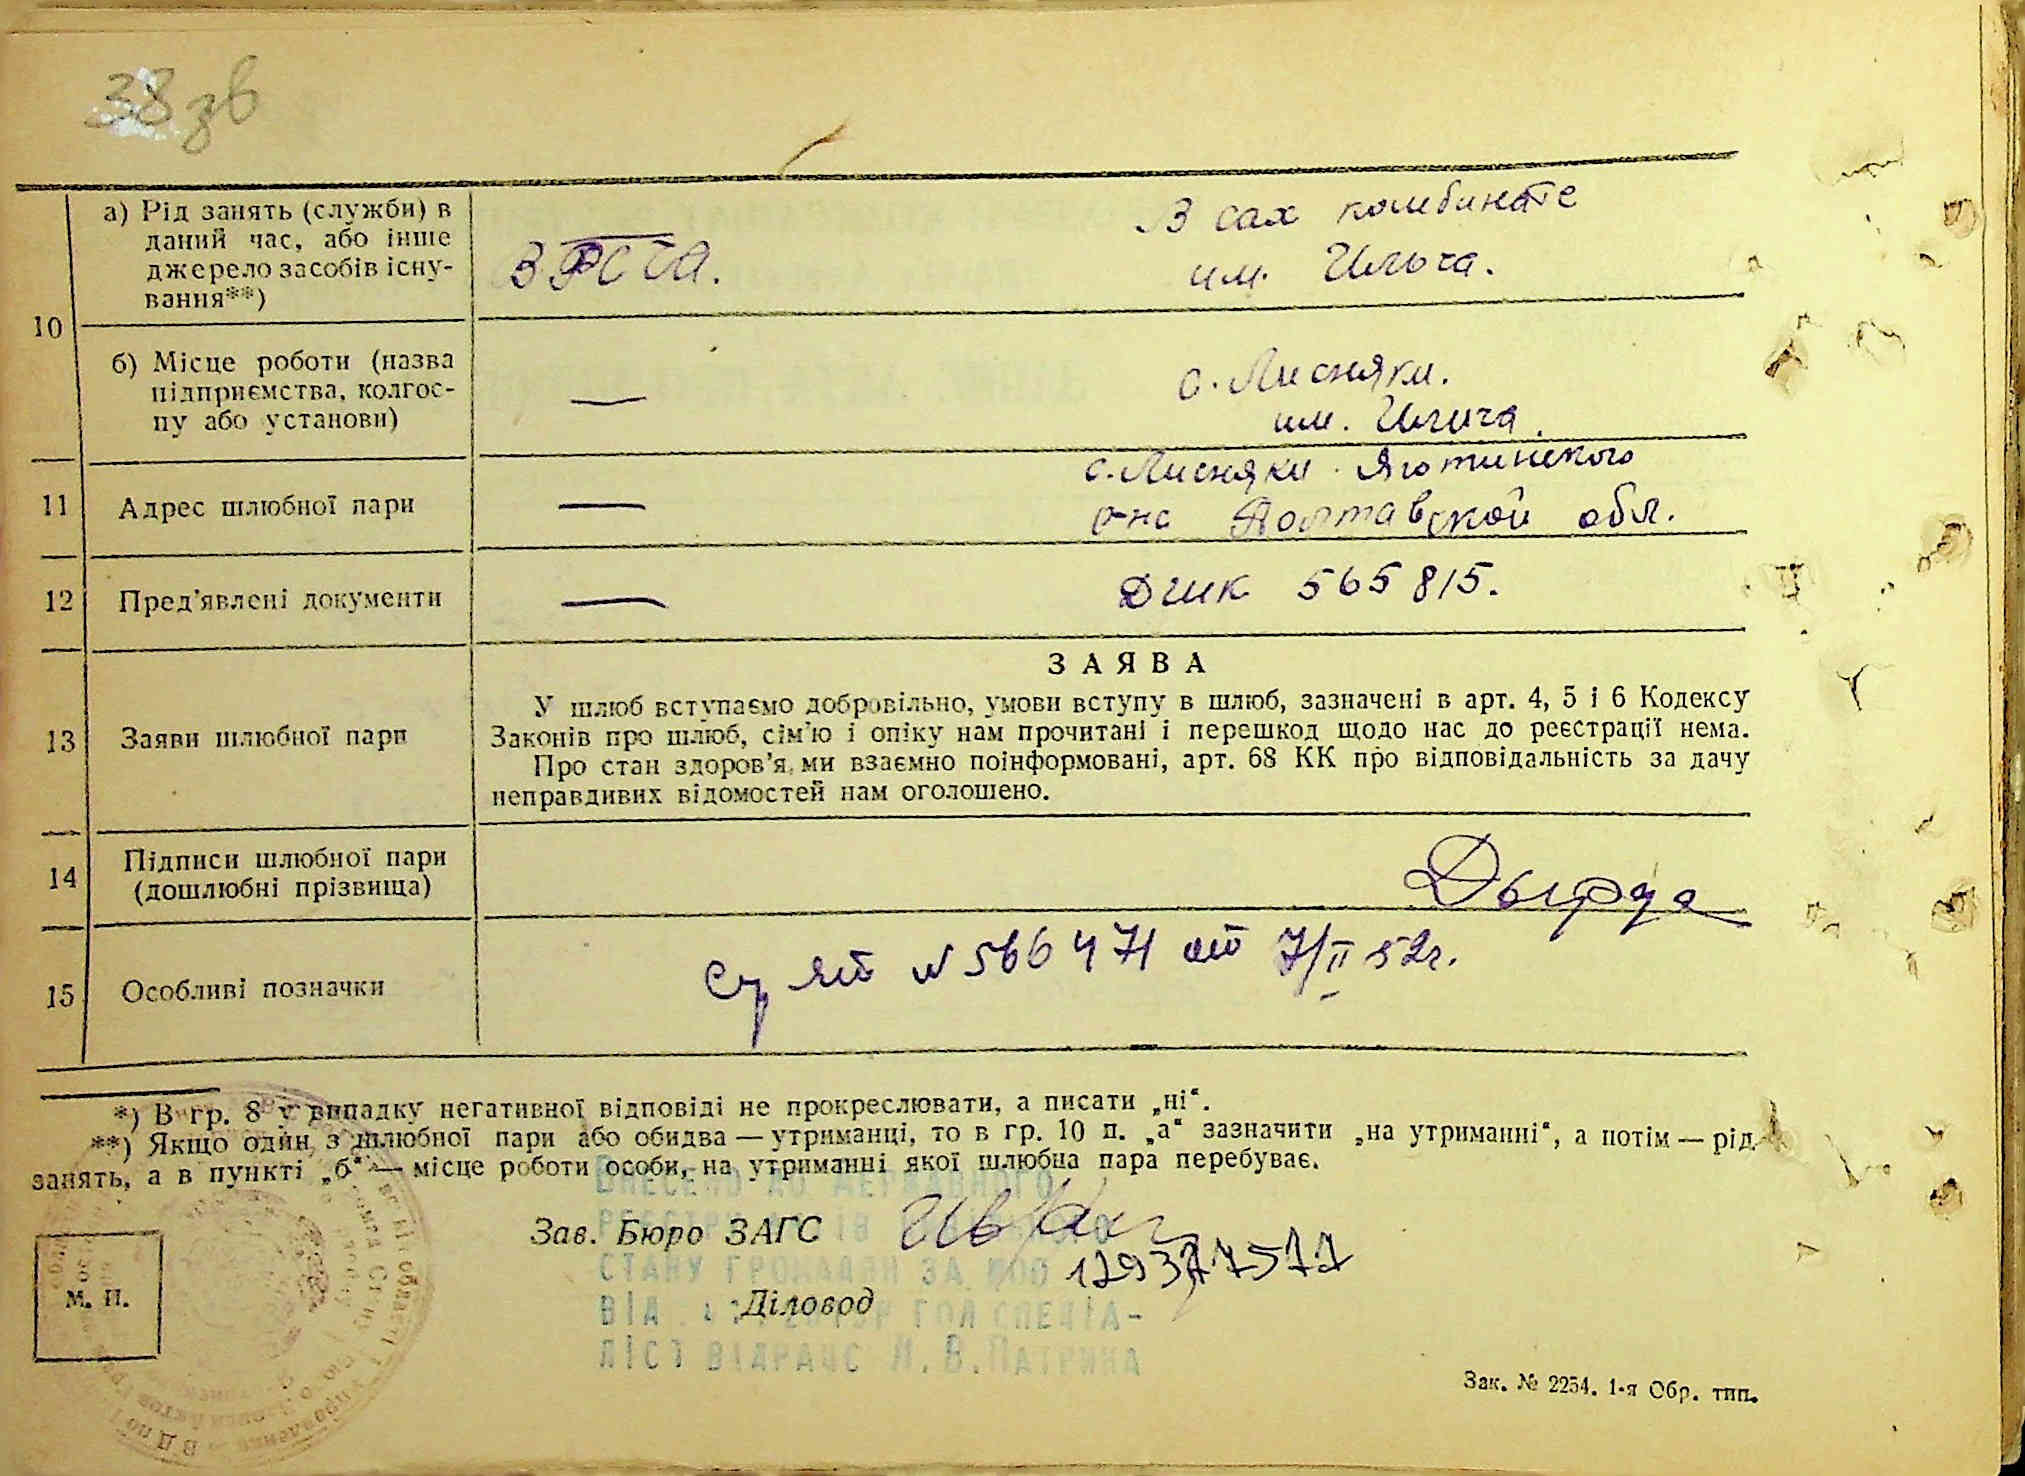 38 зв
а) Рід занять (служби) в
даний час, або інше
джерело засобів існу-
вання**)
В сах комбинате
им. Ильча.
10
б) Місце роботи (назва
підприємства, колгос-
пу або установи)
—
с. Лисняки.
им. Илича.
11
Адрес шлюбної пари
—
с. Лисняки Яготинского
р-на Полтавской обл.
12
Пред'явлені документи
—
565815.
ЗАЯВА
13
Заяви шлюбної пари
У шлюб вступаємо добровільно, умови вступу в шлюб, зазначені в арт. 4, 5 і 6 Кодексу
Законів про шлюб, сім'ю і опіку нам прочитані і перешкод щодо нас до реєстрації нема.
Про стан здоров'я ми взаємно поінформовані, арт. 68 КК про відповідальність за дачу
неправдивих відомостей нам оголошено.
14
Підписи шлюбної пари
(дошлюбні прізвища)
Дырда
15
Особливі позначки
№ 566471 от 7/II 52г.
*) В гр. 8 у випадку негативної відповіді не прокреслювати, а писати „ні“.
**) Якщо один з шлюбної пари або обидва — утриманці, то в гр. 10 п. „а“ зазначити „на утриманні“, а потім — рід
занять, а в пункті „б“ — місце роботи особи, на утриманні якої шлюбна пара перебуває.
ВНЕСЕНО ДО ДЕРЖАВНОГО
Зав. Бюро ЗАГС
СТАНУ ГРОМАДЯН ЗА
М. П.
Діловод
ГОЛ СПЕЦІА-
ЛІСТ ВІДРАЦС
Зак. № 2254. 1-я Обр. тип.